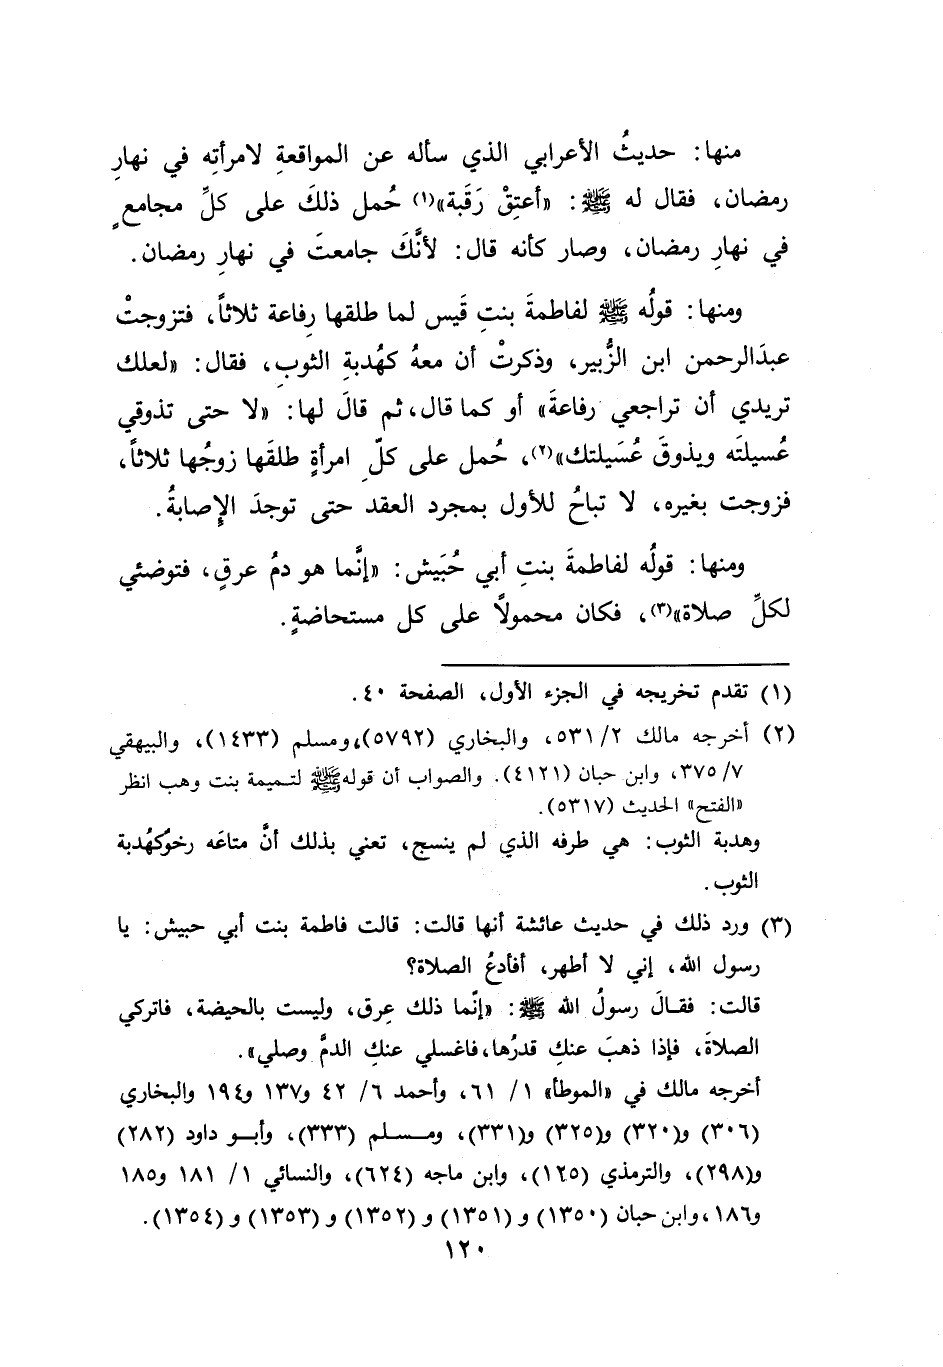 منها: حديثُ الأعرابي الذي سأله عن المواقعةِ لامرأتِه في نهارِ
رمضان، فقال له ﷺ: «أعتِقْ رَقَبة»(١) حُمل ذلكَ على كلِّ مجامعٍ
في نهارِ رمضان، وصار كأنه قال: لأنَّكَ جامعتَ في نهارِ رمضان.
ومنها: قولُه ﷺ لفاطمةَ بنتِ قَيس لما طلقها رِفاعة ثلاثاً، فتزوجتْ
عبدَالرحمن ابن الزُّبير، وذكرتْ أن معهُ كهُدبةِ الثوبِ، فقال: «لعلك
تريدي أن تراجعي رفاعةَ» أو كما قال، ثم قالَ لها: «لا حتى تذوقي
عُسيلتَه ويذوقَ عُسَيلتك»(٢)، حُمل على كلِّ امرأةٍ طلقَها زوجُها ثلاثاً،
فزوجت بغيره، لا تباحُ للأول بمجرد العقد حتى توجدَ الإِصابةُ.
ومنها: قولُه لفاطمةَ بنتِ أبي حُبَيش: «إنَّما هو دمُ عرقٍ، فتوضئي
لكلِّ صلاة»(٣)، فكان محمولاً على كل مستحاضةٍ.
(١) تقدم تخريجه في الجزء الأول، الصفحة ٤٠.
(٢) أخرجه مالك ٥٣١/٢، والبخاري (٥٧٩٢)، ومسلم (١٤٣٣)، والبيهقي
٣٧٥/٧، وابن حبان (٤١٢١). والصواب أن قوله ﷺ لتميمة بنت وهب انظر
«الفتح» الحديث (٥٣١٧).
وهدبة الثوب: هي طرفه الذي لم ينسج، تعني بذلك أنَّ متاعَه رخوٌ كهُدبة
الثوب.
(٣) ورد ذلك في حديث عائشة أنها قالت: قالت فاطمة بنت أبي حبيش: يا
رسول الله، إني لا أطهر، أفأدعُ الصلاة؟
قالت: فقالَ رسولُ الله ﷺ: «إنَّما ذلك عِرق، وليست بالحيضة، فاتركي
الصلاةَ، فإذا ذهبَ عنكِ قدرُها، فاغسلي عنكِ الدمَّ وصلي».
أخرجه مالك في «الموطأ» ١/ ٦١، وأحمد ٦/ ٤٢ و١٣٧ و١٩٤ والبخاري
(٣٠٦) و(٣٢٠) و(٣٢٥) و(٣٣١)، ومسلم (٣٣٣)، وأبو داود (٢٨٢)
و(٢٩٨)، والترمذي (١٢٥)، وابن ماجه (٦٢٤)، والنسائي ١/ ١٨١ و١٨٥
و١٨٦، وابن حبان (١٣٥٠) و (١٣٥١) و (١٣٥٢) و (١٣٥٣) و (١٣٥٤).
١٢٠